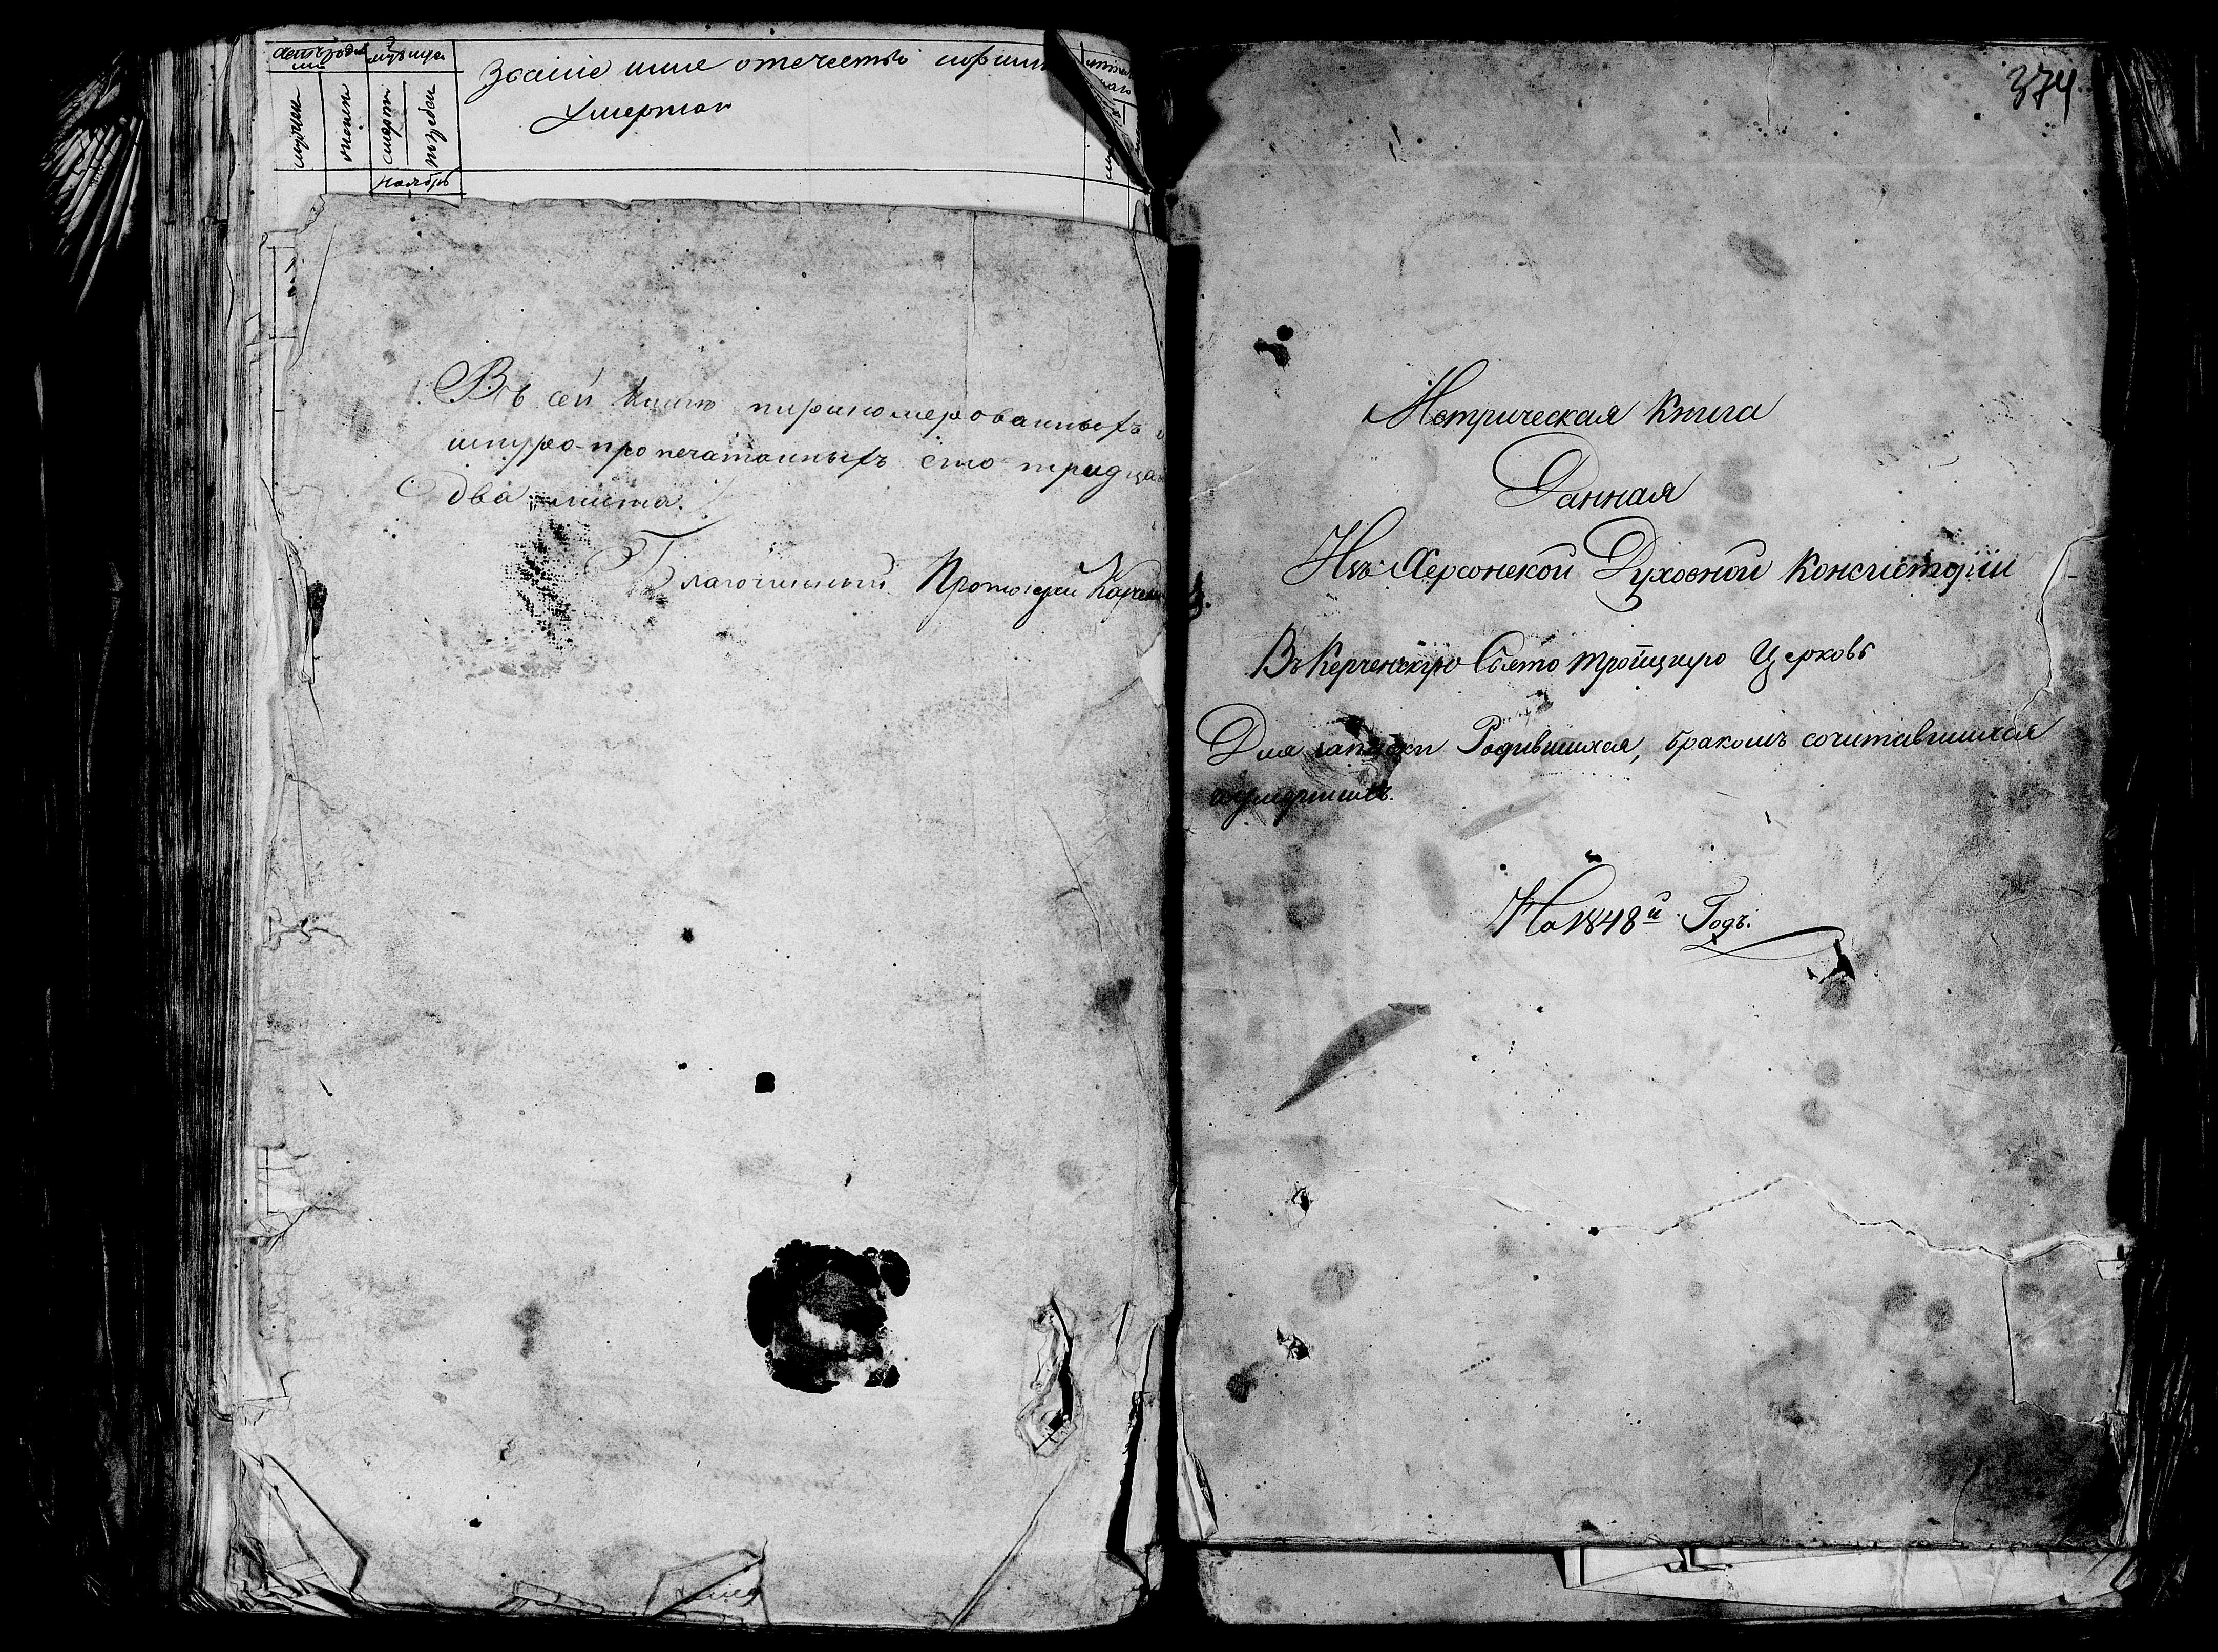 лѣтъ рожде
ніе
мѣсяца
Званіе имя отечество и фами
Умершаго
мужчин
женск
смерти
погребен
Ноябрь
Въ сей книгѣ перономерованныхъ и
шнуро-пропечатанныхъ сто тридца
два листа.
Благочинный Протоіерей
374.
Метрическая Книга
Данная
Изъ Херсонской Духовной Консисторіи
Въ Керченскую Свято Троицкую Церковь
Для записки Родившихся, бракомъ сочитавшихся
и умершихъ.
На 1848й Годъ.